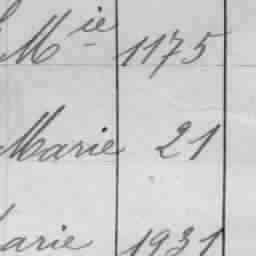 Mie 1175
Marie 21
arie 1931